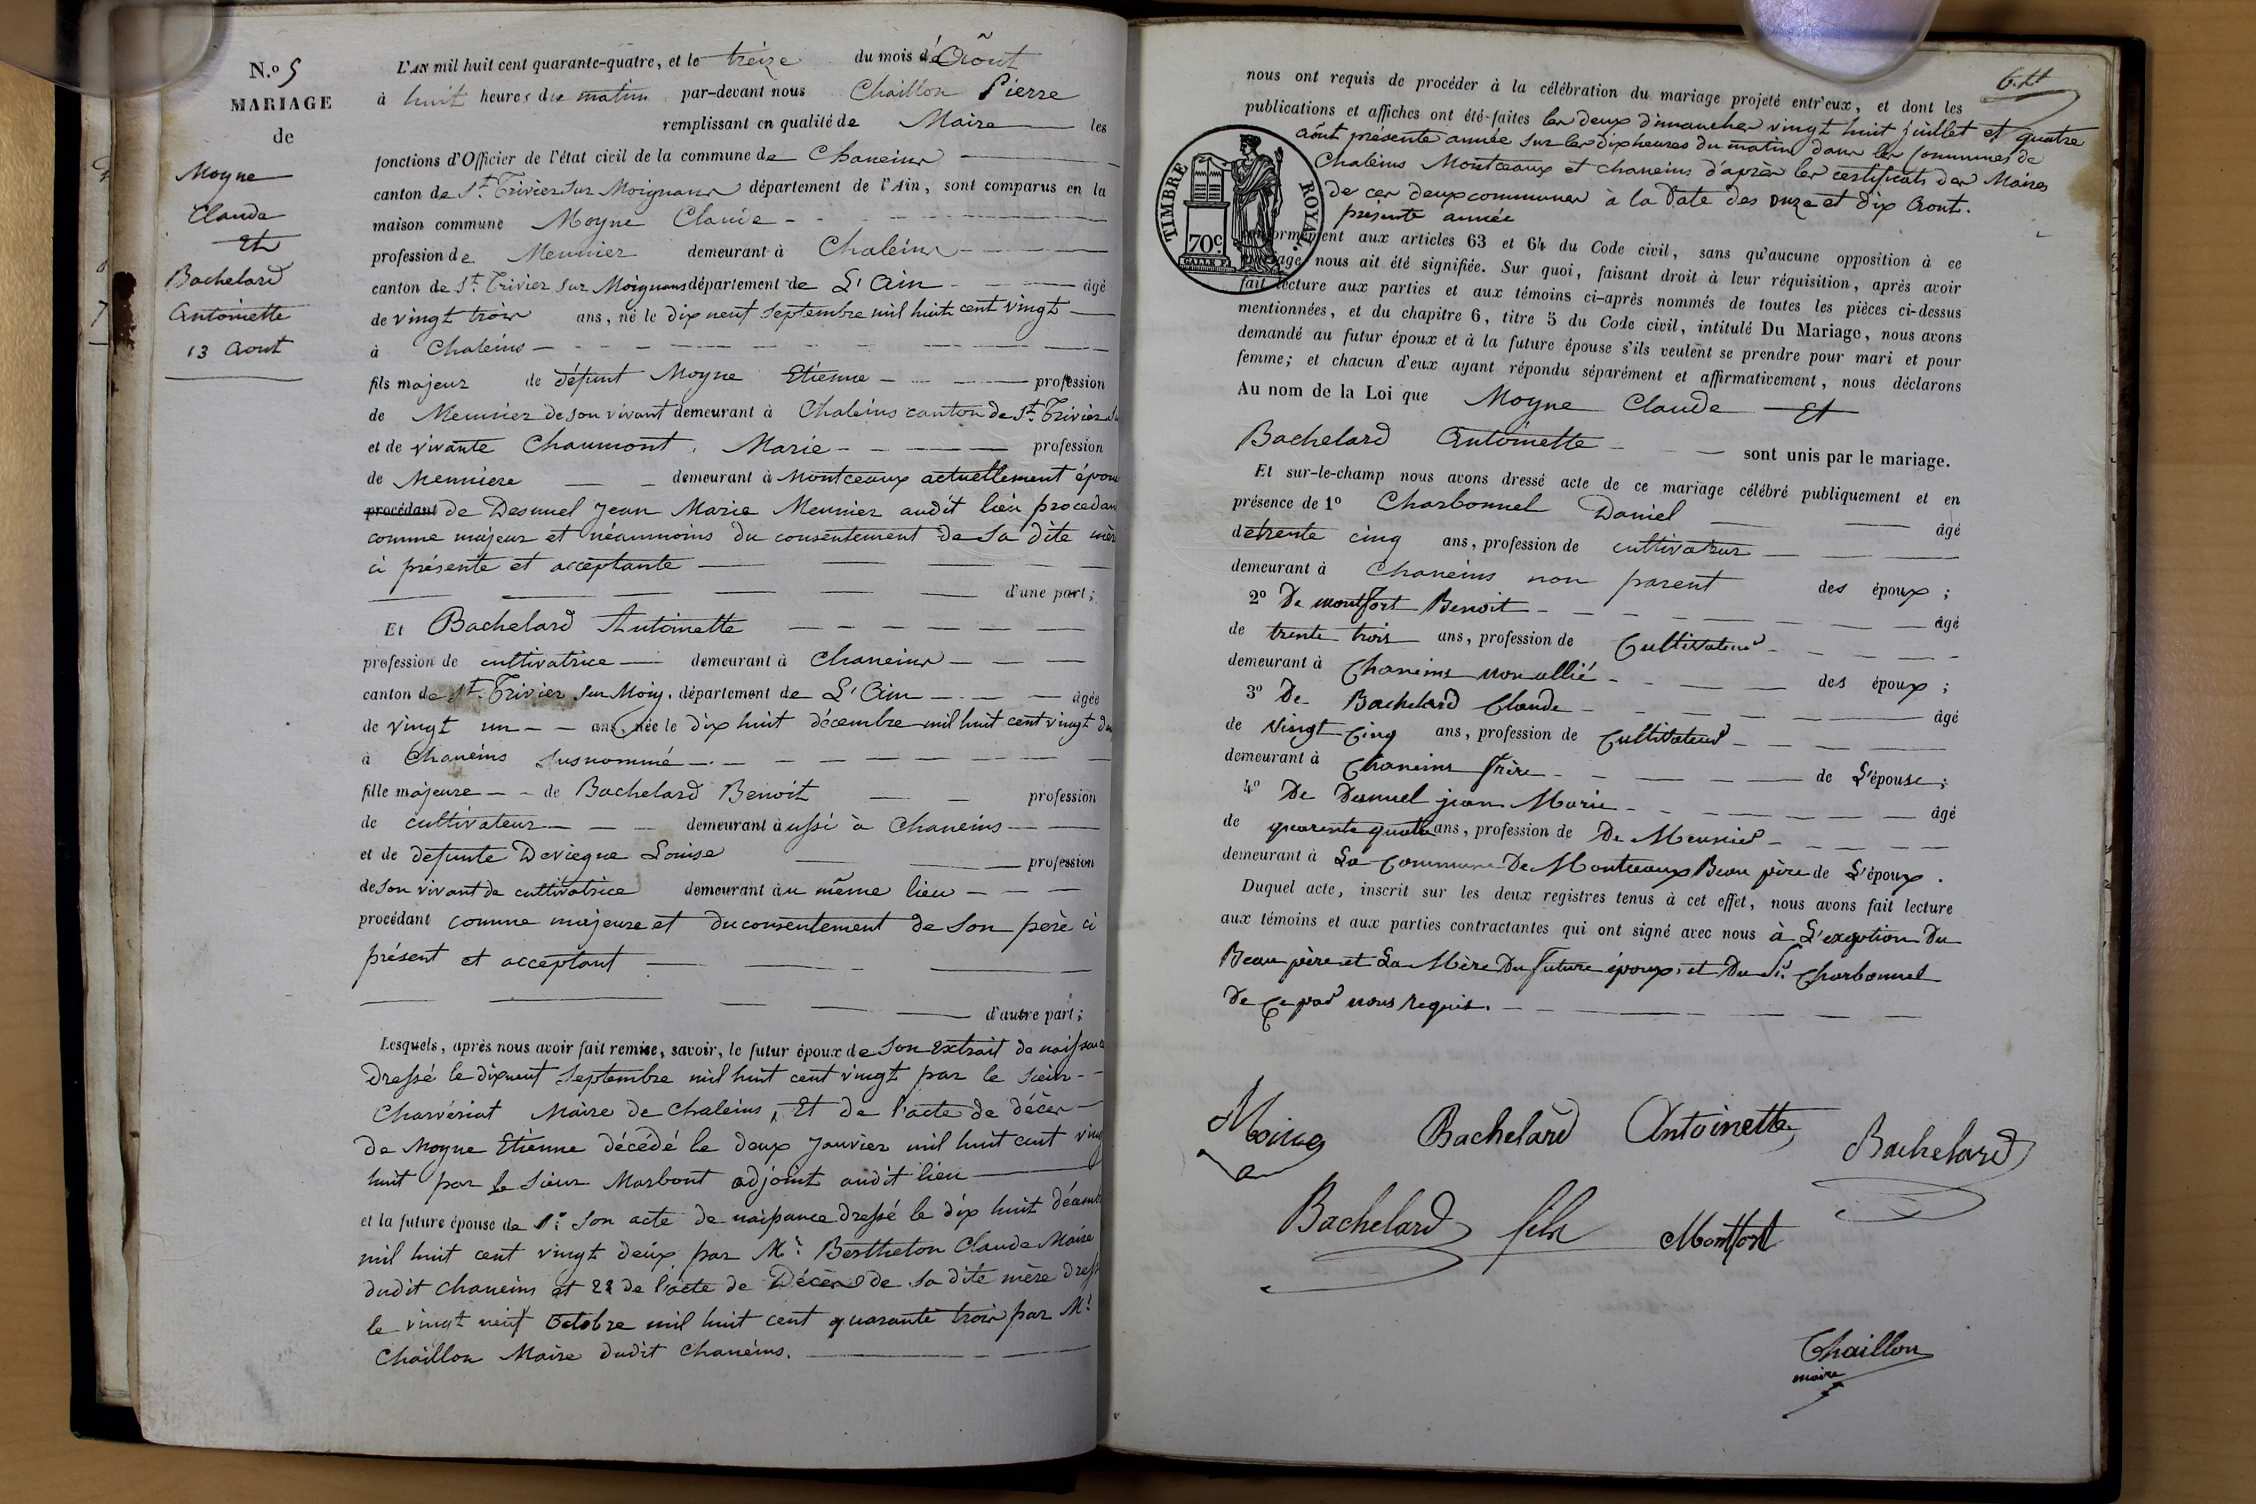 N.º 5
MARIAGE
de
Moyne
Claude
Et
Bachelard
Antoinette
13 Aout
L'AN mil huit cent quarante-quatre, et le treize du mois d'Août
à huit heures du matin par-devant nous Chaillon Pierre
remplissant en qualité de Maire les
fonctions d'Officier de l'état civil de la commune de Chaneins
canton de St. Trivier sur Moignans département de l'Ain, sont comparus en la
maison commune Moyne Claude
profession de Meunier demeurant à Chaleins
canton de St. Trivier sur Moignans département de L'Ain âgé
de vingt trois ans, né le dix neuf Septembre mil huit cent vingt
à Chaleins
fils majeur de défunt Moyne Etienne profession
de Meunier de son vivant demeurant à Chaleins canton de St. Trivier
et de vivante Chaumont, Marie profession
de Meuniere demeurant à Montceaux actuellement épouse
procédant de Desmuel Jean Marie Meunier audit lieu procedant
comme majeur et néanmoins du consentement de sa dite mère
ci présente et acceptante
d'une part;
Et Bachelard Antoinette
profession de cultivatrice demeurant à Chaneins
canton de St. Trivier sur Moig. département de L'Ain âgée
de vingt un ans, née le dix huit décembre mil huit cent vingt deux
à Chaneins susnommé
fille majeure de Bachelard Benoit profession
de cultivateur demeurant à ussi à Chaneins
et de defunte Deviegue Louise profession
de son vivant de cultivatrice demeurant àu même lieu
procédant comme majeure et du consentement de son père ci
présent et acceptant
d'autre part;
Lesquels, après nous avoir fait remise, savoir, le futur époux de son extrait de naissance
Dressé le dix neuf Septembre mil huit cent vingt par le sieur
Charvériat Maire de Chaleins, Et de l'acte de décès
de Moyne Etienne décédé le deux Janvier mil huit cent vingt
huit par le sieur Marbout adjoint audit lieu
et la future épouse de 1º Son acte de naissance dressé le dix huit décembre
mil huit cent vingt deux par Mr. Bertheton Claude Maire
dudit Chaneins et 2º de l'acte de Décès de sa dite mère dressé
le vingt neuf Octobre mil huit cent quarante trois par Mr
Chaillon Maire dudit Chaneins.
6.tt
nous ont requis de procéder à la célébration du mariage projeté entr'eux, et dont les
publications et affiches ont été-faites les deux dimanches vingt huit juillet et quatre
août présente année sur les dix heures du matin dans les communes de
Chaleins Montceaux et chaneins d'après les certificats des Maires
de ces deux communes à la Date des onze et dix Aout.
présente année
TIMBRE ROYAL.
70c.
GALLE F.
conformément aux articles 63 et 64 du Code civil, sans qu'aucune opposition à ce
mariage nous ait été signifiée. Sur quoi, faisant droit à leur réquisition, après avoir
fait lecture aux parties et aux témoins ci-après nommés de toutes les pièces ci-dessus
mentionnées, et du chapitre 6, titre 5 du Code civil, intitulé Du Mariage, nous avons
demandé au futur époux et à la future épouse s'ils veulent se prendre pour mari et pour
femme; et chacun d'eux ayant répondu séparément et affirmativement, nous déclarons
Au nom de la Loi que Moyne Claude Et
Bachelard Antoinette sont unis par le mariage.
Et sur-le-champ nous avons dressé acte de ce mariage célébré publiquement et en
présence de 1º Charbonnel Daniel âgé
de trente cinq ans, profession de cultivateur
demeurant à Chaneins non parent des époux;
2º De montfort Benoit âgé
de trente trois ans, profession de Cultivateur
demeurant à Chaneins non allié des époux;
3º De Bachelard Claude âgé
de Vingt Cinq ans, profession de Cultivateur
demeurant à Chaneins frère de L'épouse;
4º De Desmuel jean Marie âgé
de quarente quatre ans, profession de De Meunier
demeurant à La Commune De Montceaux Beau père de L'époux.
Duquel acte, inscrit sur les deux registres tenus à cet effet, nous avons fait lecture
aux témoins et aux parties contractantes qui ont signé avec nous à L'exeption Du
Beau père et La Mère Du future époux, et Du Sr. Charbonnel
De Ce par nous Requis.
Moine
Bachelard Antoinette
Bachelard
Bachelard fils
Montfort
Chaillon
maire